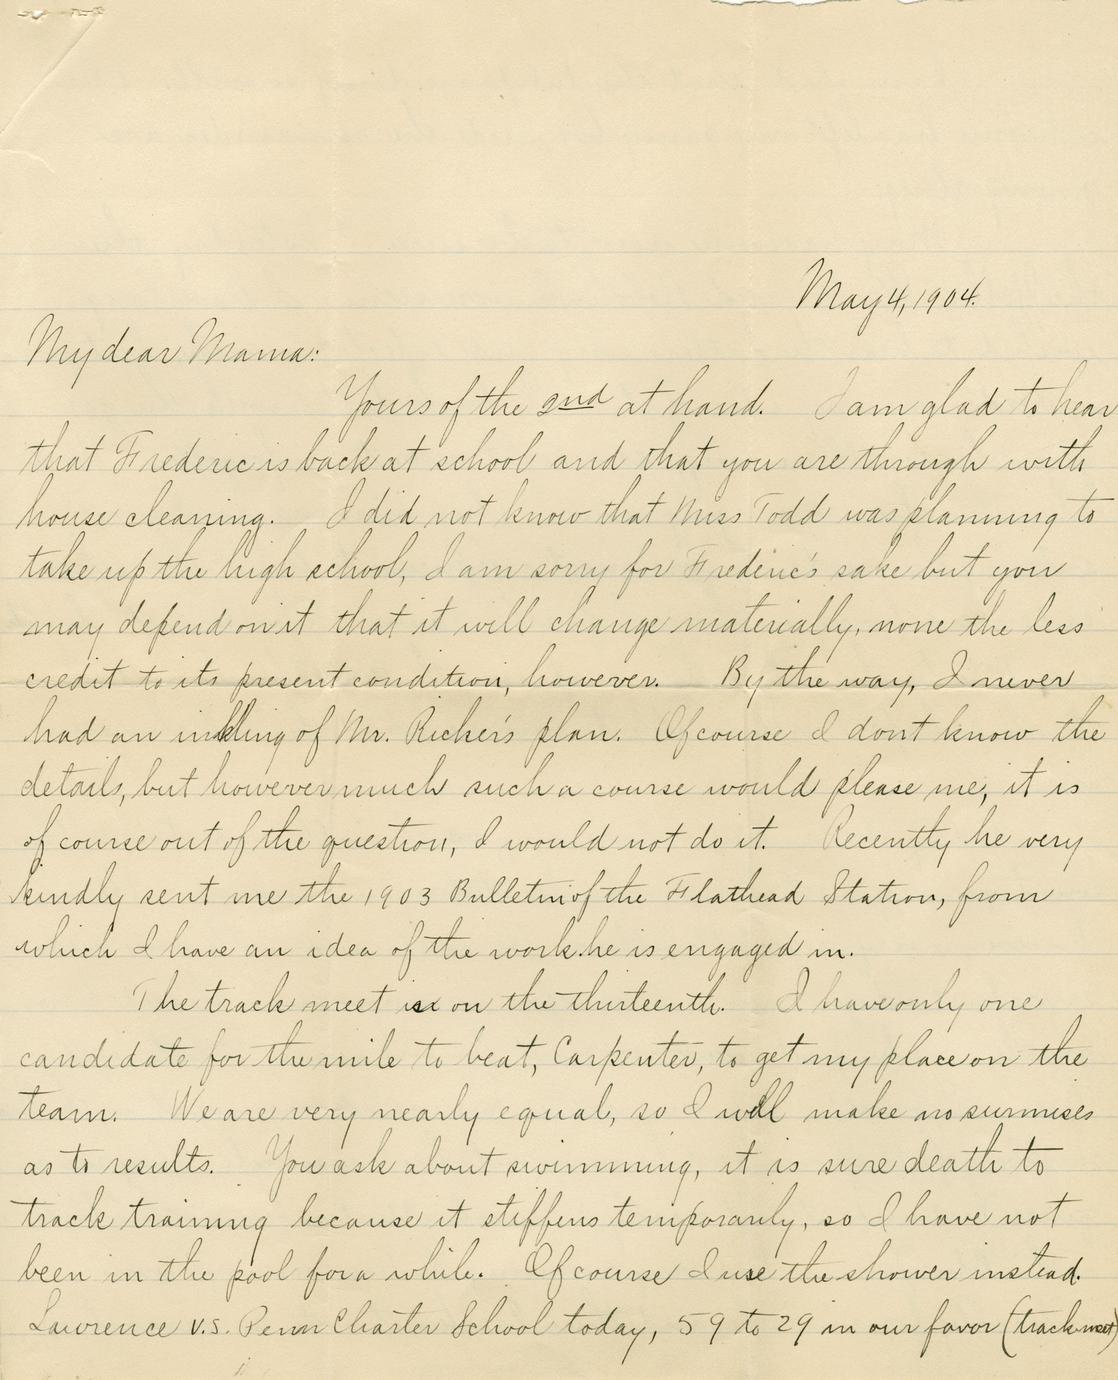 May 4, 1904.
My dear Mama:
Yours of the 2nd at hand. I am glad to hear
that Frederic is back at school and that you are through with
house cleaning. I did not know that Miss Todd was planning to
take up the high school, I am sorry for Frederic's sake but you
may depend on it that it will change materially, none the less
credit to its present condition, however. By the way, I never
had an inkling of Mr. Ricker's plan. Of course I dont know the
details, but however much such a course would please me, it is
of course out of the question, I would not do it. Recently he very
kindly sent me the 1903 Bulletin of the Flathead Station, from
which I have an idea of the work he is engaged in.
The track meet is on the thirteenth. I have only one
candidate for the mile to beat, Carpenter, to get my place on the
team. We are very nearly equal, so I will make no surmises
as to results. You ask about swimming, it is sure death to
track training because it stiffens temporarily, so I have not
been in the pool for a while. Of course I use the shower instead.
Lawrence v.s. Penn Charter School today, 59 to 29 in our favor (track meet)